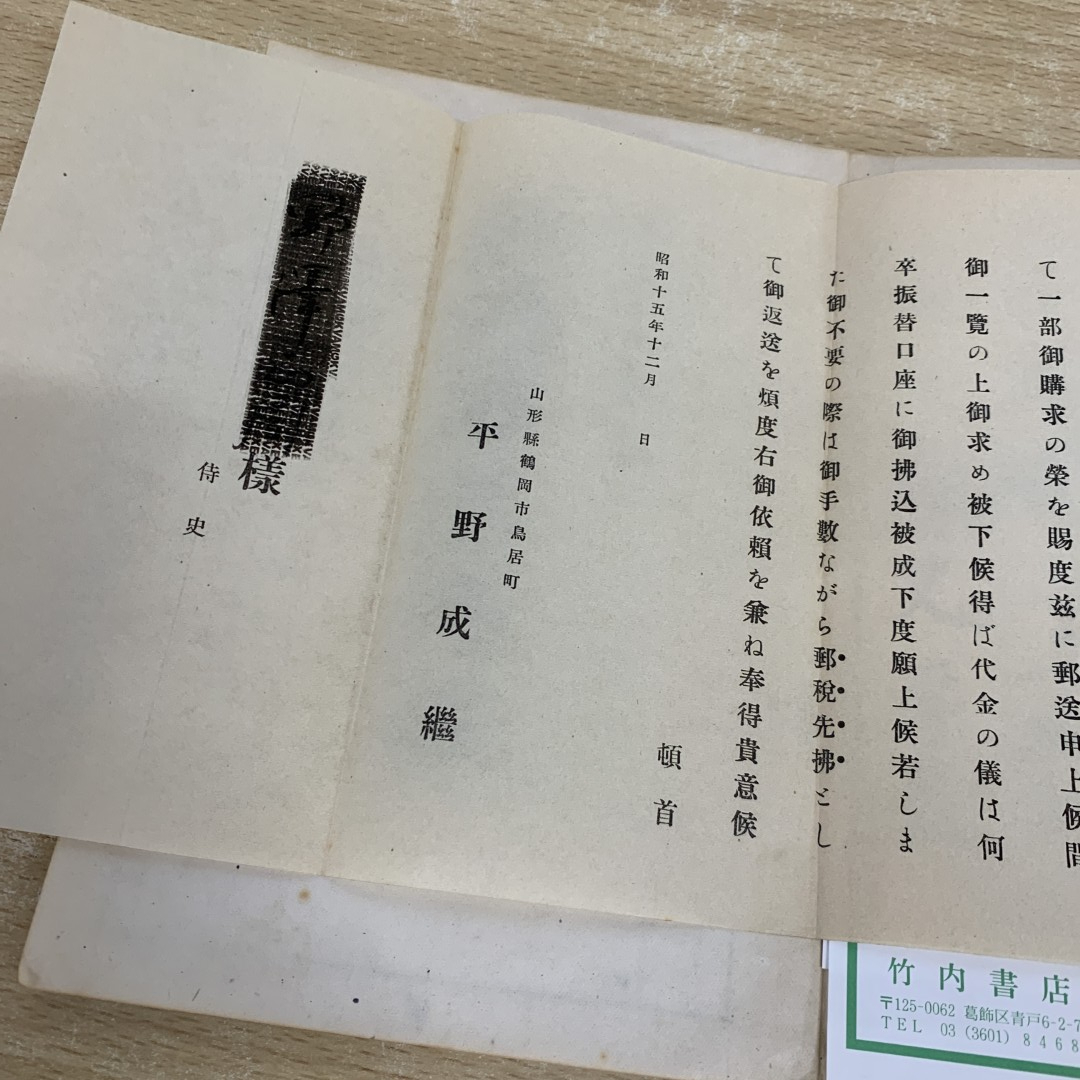 て一部御購求の榮を賜度玆に郵送申上候間
御一覽の上御求め被下候得ば代金の儀は何
卒振替口座に御拂込被成下度願上候若しま
た御不要の際は御手數ながら郵稅先拂とし
て御返送を煩度右御依賴を兼ね奉得貴意候
頓首
昭和十五年十二月　日
山形縣鶴岡市鳥居町
平野成繼
樣
侍史
竹内書店
〒125-0062 葛飾区青戸6-2-7
TEL 03 (3601) 8468